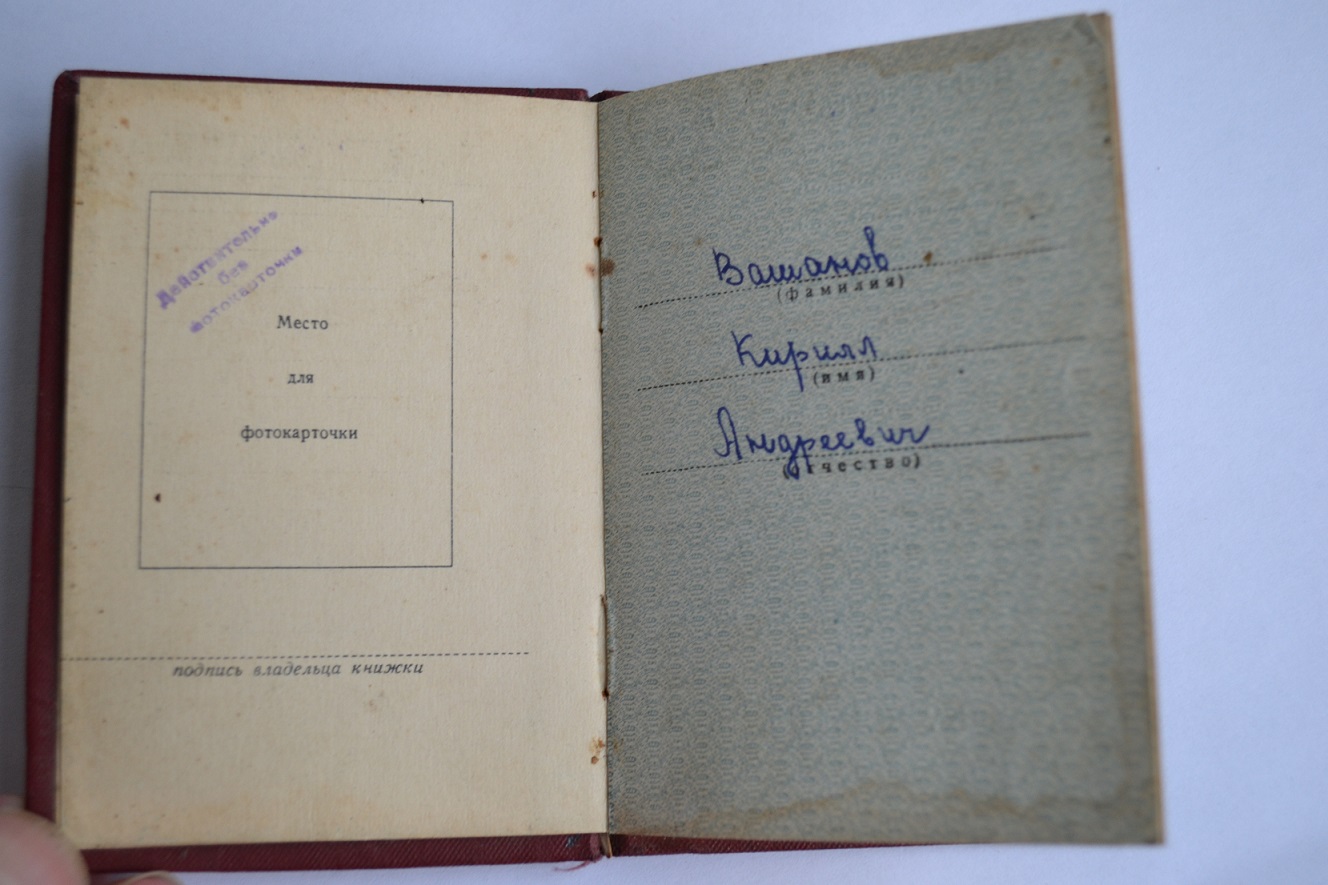 Действительно
без
фотокарточки
Место
для
фотокарточки
подпись владельца книжки
Вашанов
(фамилия)
Кирилл
(имя)
Андреевич
(отчество)